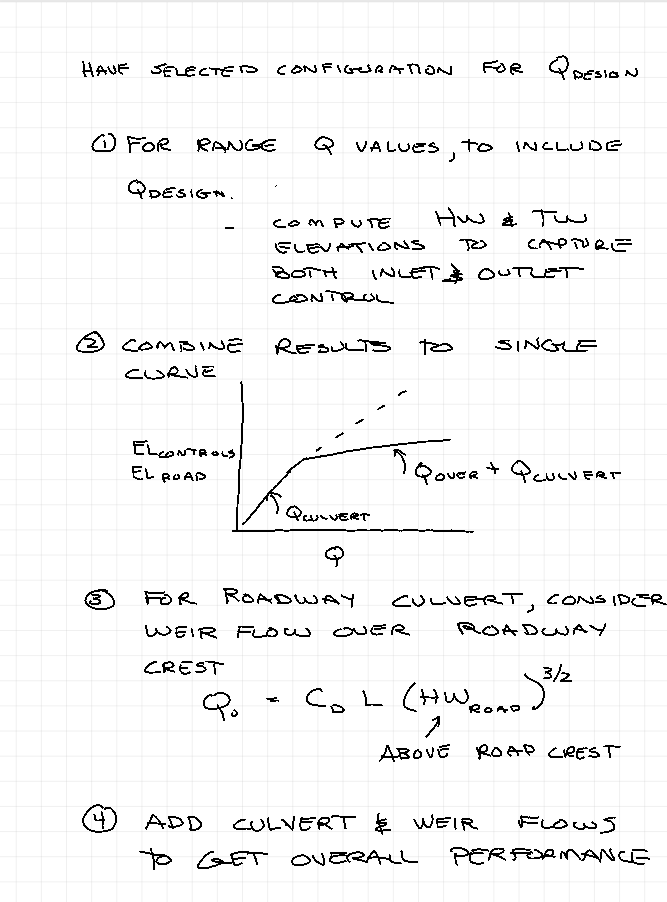 HAVE SELECTED CONFIGURATION FOR QDESIGN
① FOR RANGE Q VALUES, TO INCLUDE
QDESIGN.
- COMPUTE HW & TW
ELEVATIONS TO CAPTURE
BOTH INLET & OUTLET
CONTROL
② COMBINE RESULTS TO SINGLE
CURVE
ELCONTROLS
EL ROAD
QOVER + QCULVERT
QCULVERT
Q
③ FOR ROADWAY CULVERT, CONSIDER
WEIR FLOW OVER ROADWAY
CREST
Qo = CD L (HWROAD)3/2
ABOVE ROAD CREST
④ ADD CULVERT & WEIR FLOWS
TO GET OVERALL PERFORMANCE